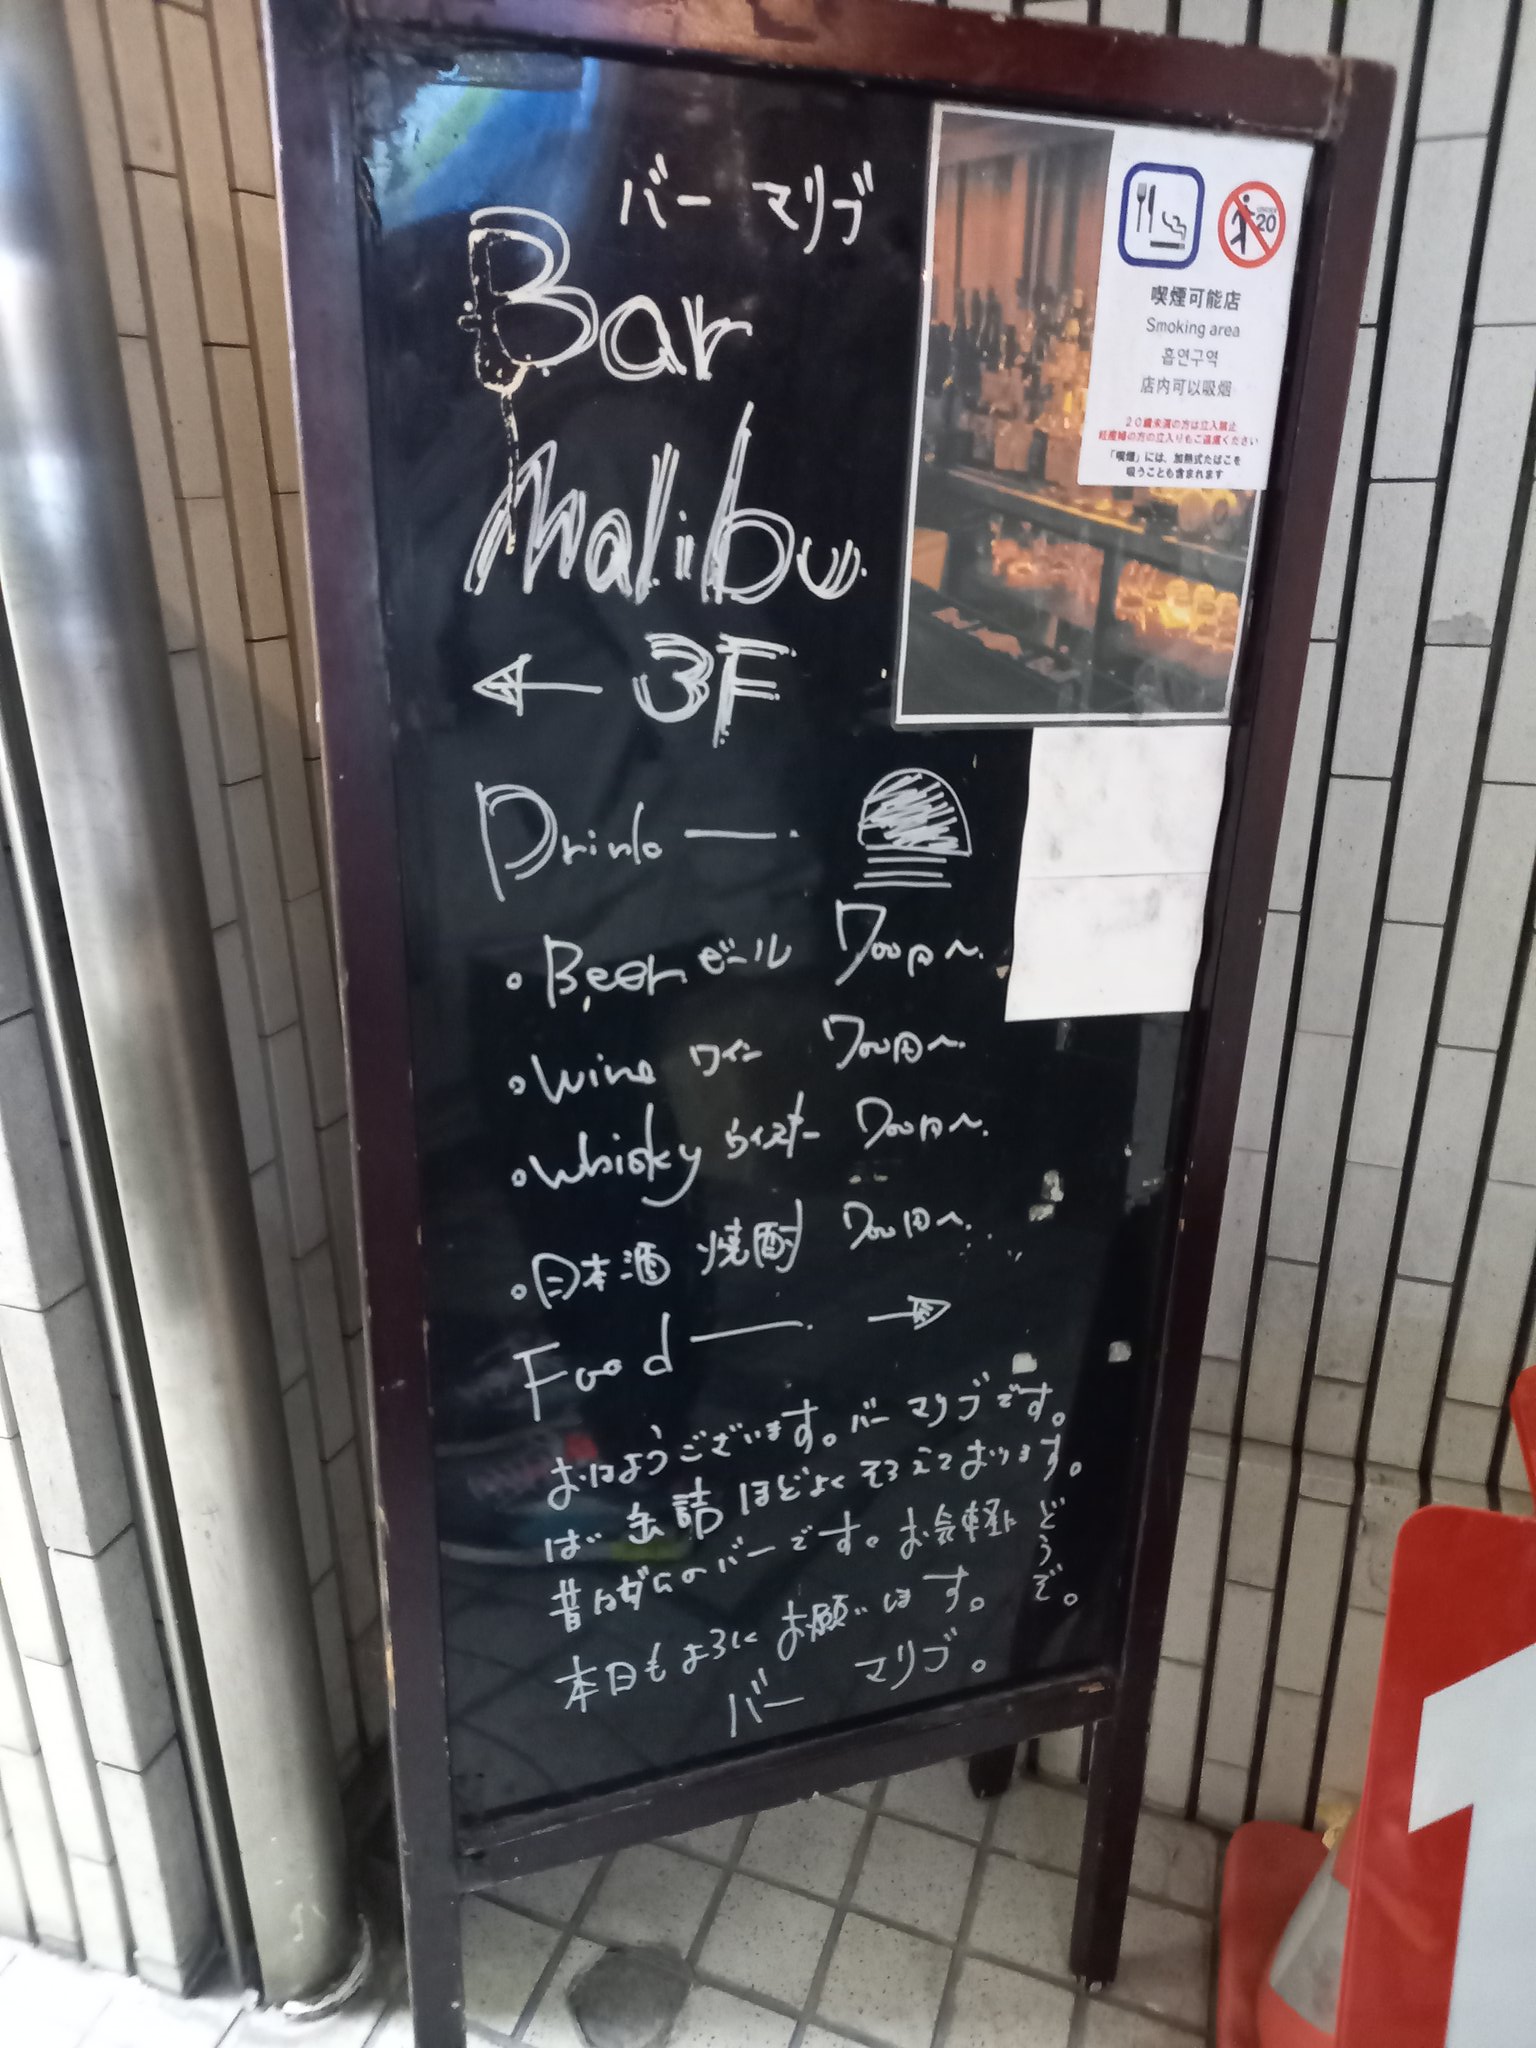 バー マリブ
Bar
Malibu
← 3F
Drink
・Beer ビール 700円〜.
・Wine ワイン 700円〜.
・Whisky ウイスキー 700円〜.
・日本酒 焼酎 700円〜.
Food →
おはようございます。バー マリブです。
缶詰 ほどよくそろえております。
昔ながらのバーです。お気軽にどうぞ。
本日もよろしくお願いします。
バー マリブ。
20
喫煙可能店
Smoking area
흡연구역
店内可以吸烟
20歳未満の方は立入禁止
妊産婦の方の立入りもご遠慮ください
「喫煙」には、加熱式たばこを
吸うことも含まれます
1